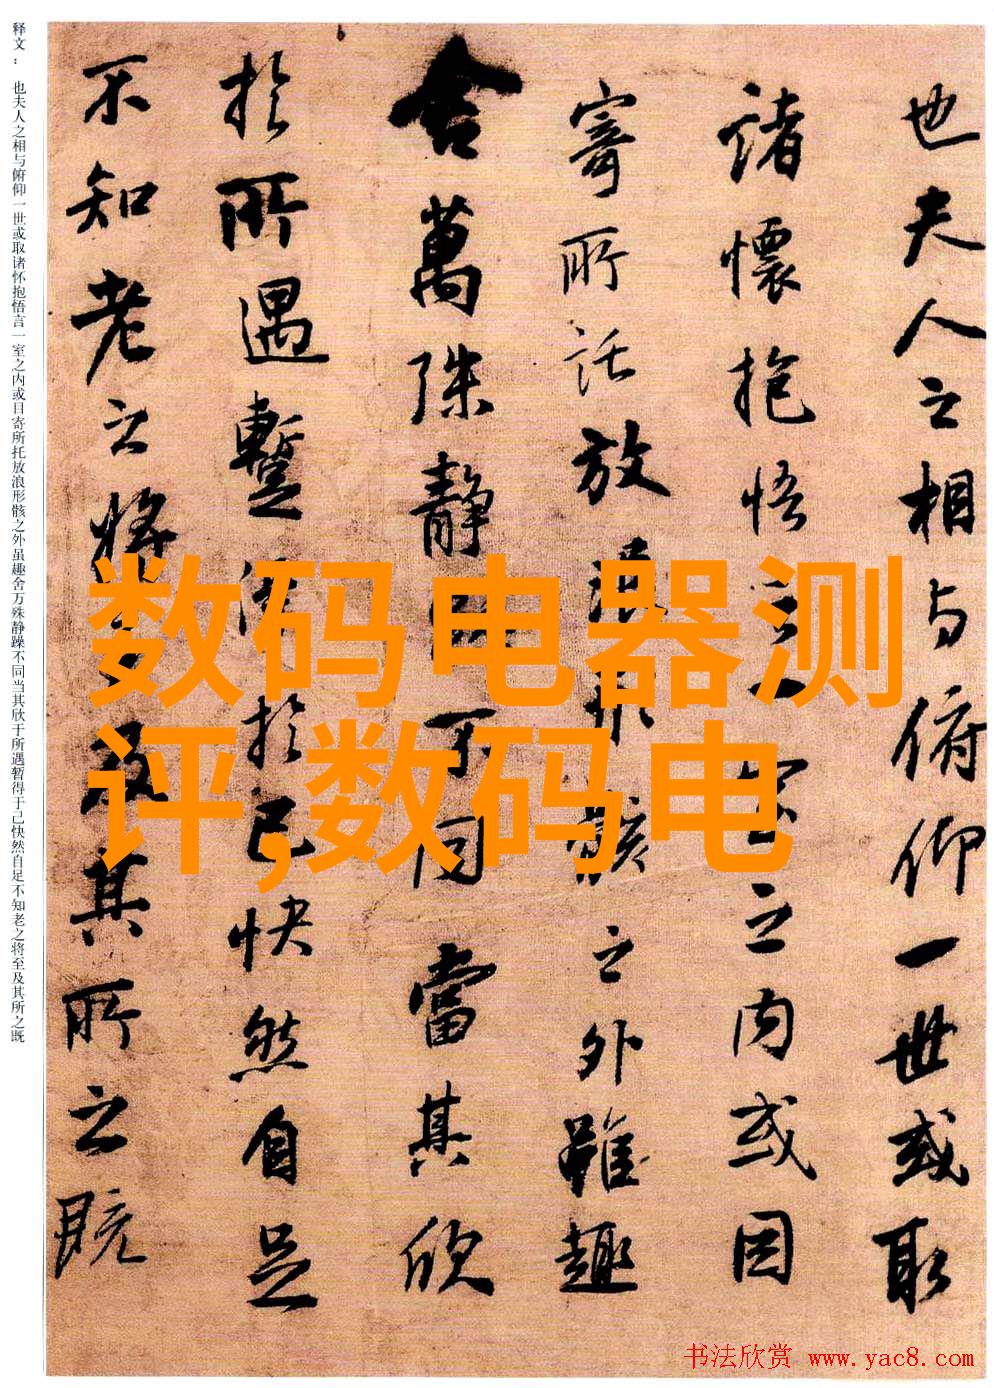 也夫人之相与俯仰一世或取
諸懷抱悟言一室之内或因
寄所託放浪形骸之外雖趣
舍萬殊静躁不同當其欣
於所遇蹔得於己快然自足
不知老之將至及其所之既
释文： 也夫人之相与俯仰一世或取诸怀抱悟言一室之内或目寄所托放浪形骸之外虽趣舍万殊静躁不同当其欣于所遇暂得于己快然自足不知老之将至及其所之既
数码电器测
评,数码电
书法欣赏 www.yac8.com